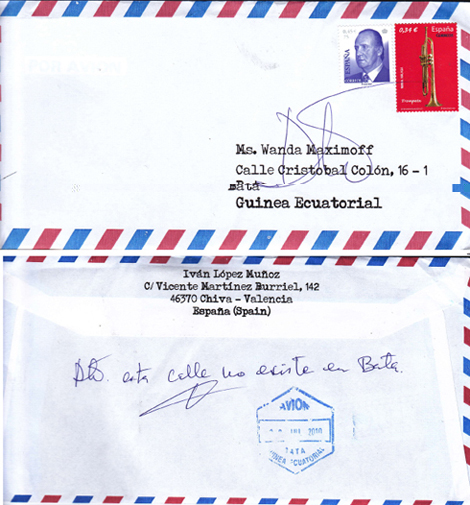 0,34 €
España
ESPAÑA
Trompeta
Ms. Wanda Maximoff
Calle Cristobal Colón, 16 - 1
Bata
Guinea Ecuatorial
Iván López Muñoz
C/ Vicente Martínez Burriel, 142
46370 Chiva - Valencia
España (Spain)
esta calle no existe en Bata.
AVION
2010
BATA
GUINEA ECUATORIAL